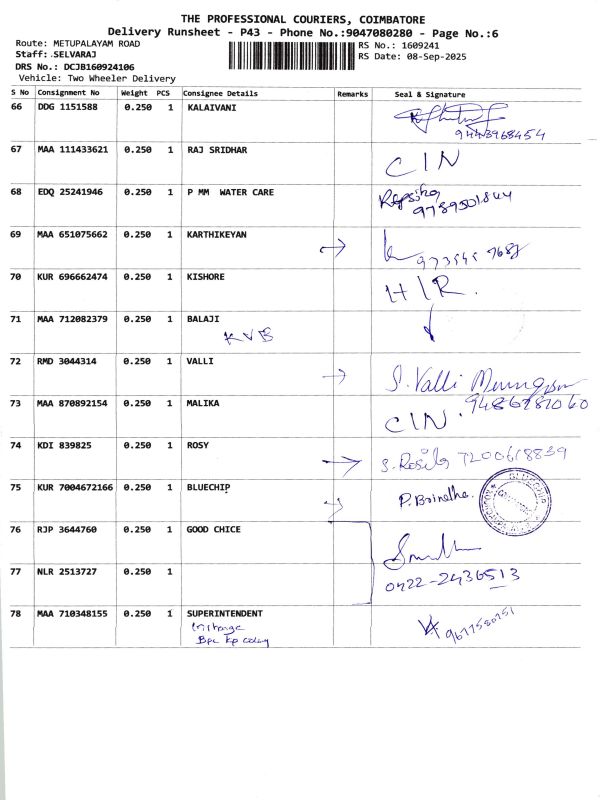 THE PROFESSIONAL COURIERS, COIMBATORE
Delivery Runsheet - P43 - Phone No.:9047080280 - Page No.:6
Route: METUPALAYAM ROAD RS No.: 1609241
Staff: .SELVARAJ RS Date: 08-Sep-2025
DRS No.: DCJB160924106
Vehicle: Two Wheeler Delivery
S No Consignment No Weight PCS Consignee Details Remarks Seal & Signature
66 DDG 1151588 0.250 1 KALAIVANI
9443968454
67 MAA 111433621 0.250 1 RAJ SRIDHAR CIN
68 EDQ 25241946 0.250 1 P MM WATER CARE
69 MAA 651075662 0.250 1 KARTHIKEYAN
70 KUR 696662474 0.250 1 KISHORE HIR.
71 MAA 712082379 0.250 1 BALAJI
KVB
72 RMD 3044314 0.250 1 VALLI S. Valli
73 MAA 870892154 0.250 1 MALIKA CIN.
74 KDI 839825 0.250 1 ROSY S. Rosily 7200618839
75 KUR 7004672166 0.250 1 BLUECHIP
BLUECHIP
76 RJP 3644760 0.250 1 GOOD CHICE
77 NLR 2513727 0.250 1 0422-2436513
78 MAA 710348155 0.250 1 SUPERINTENDENT